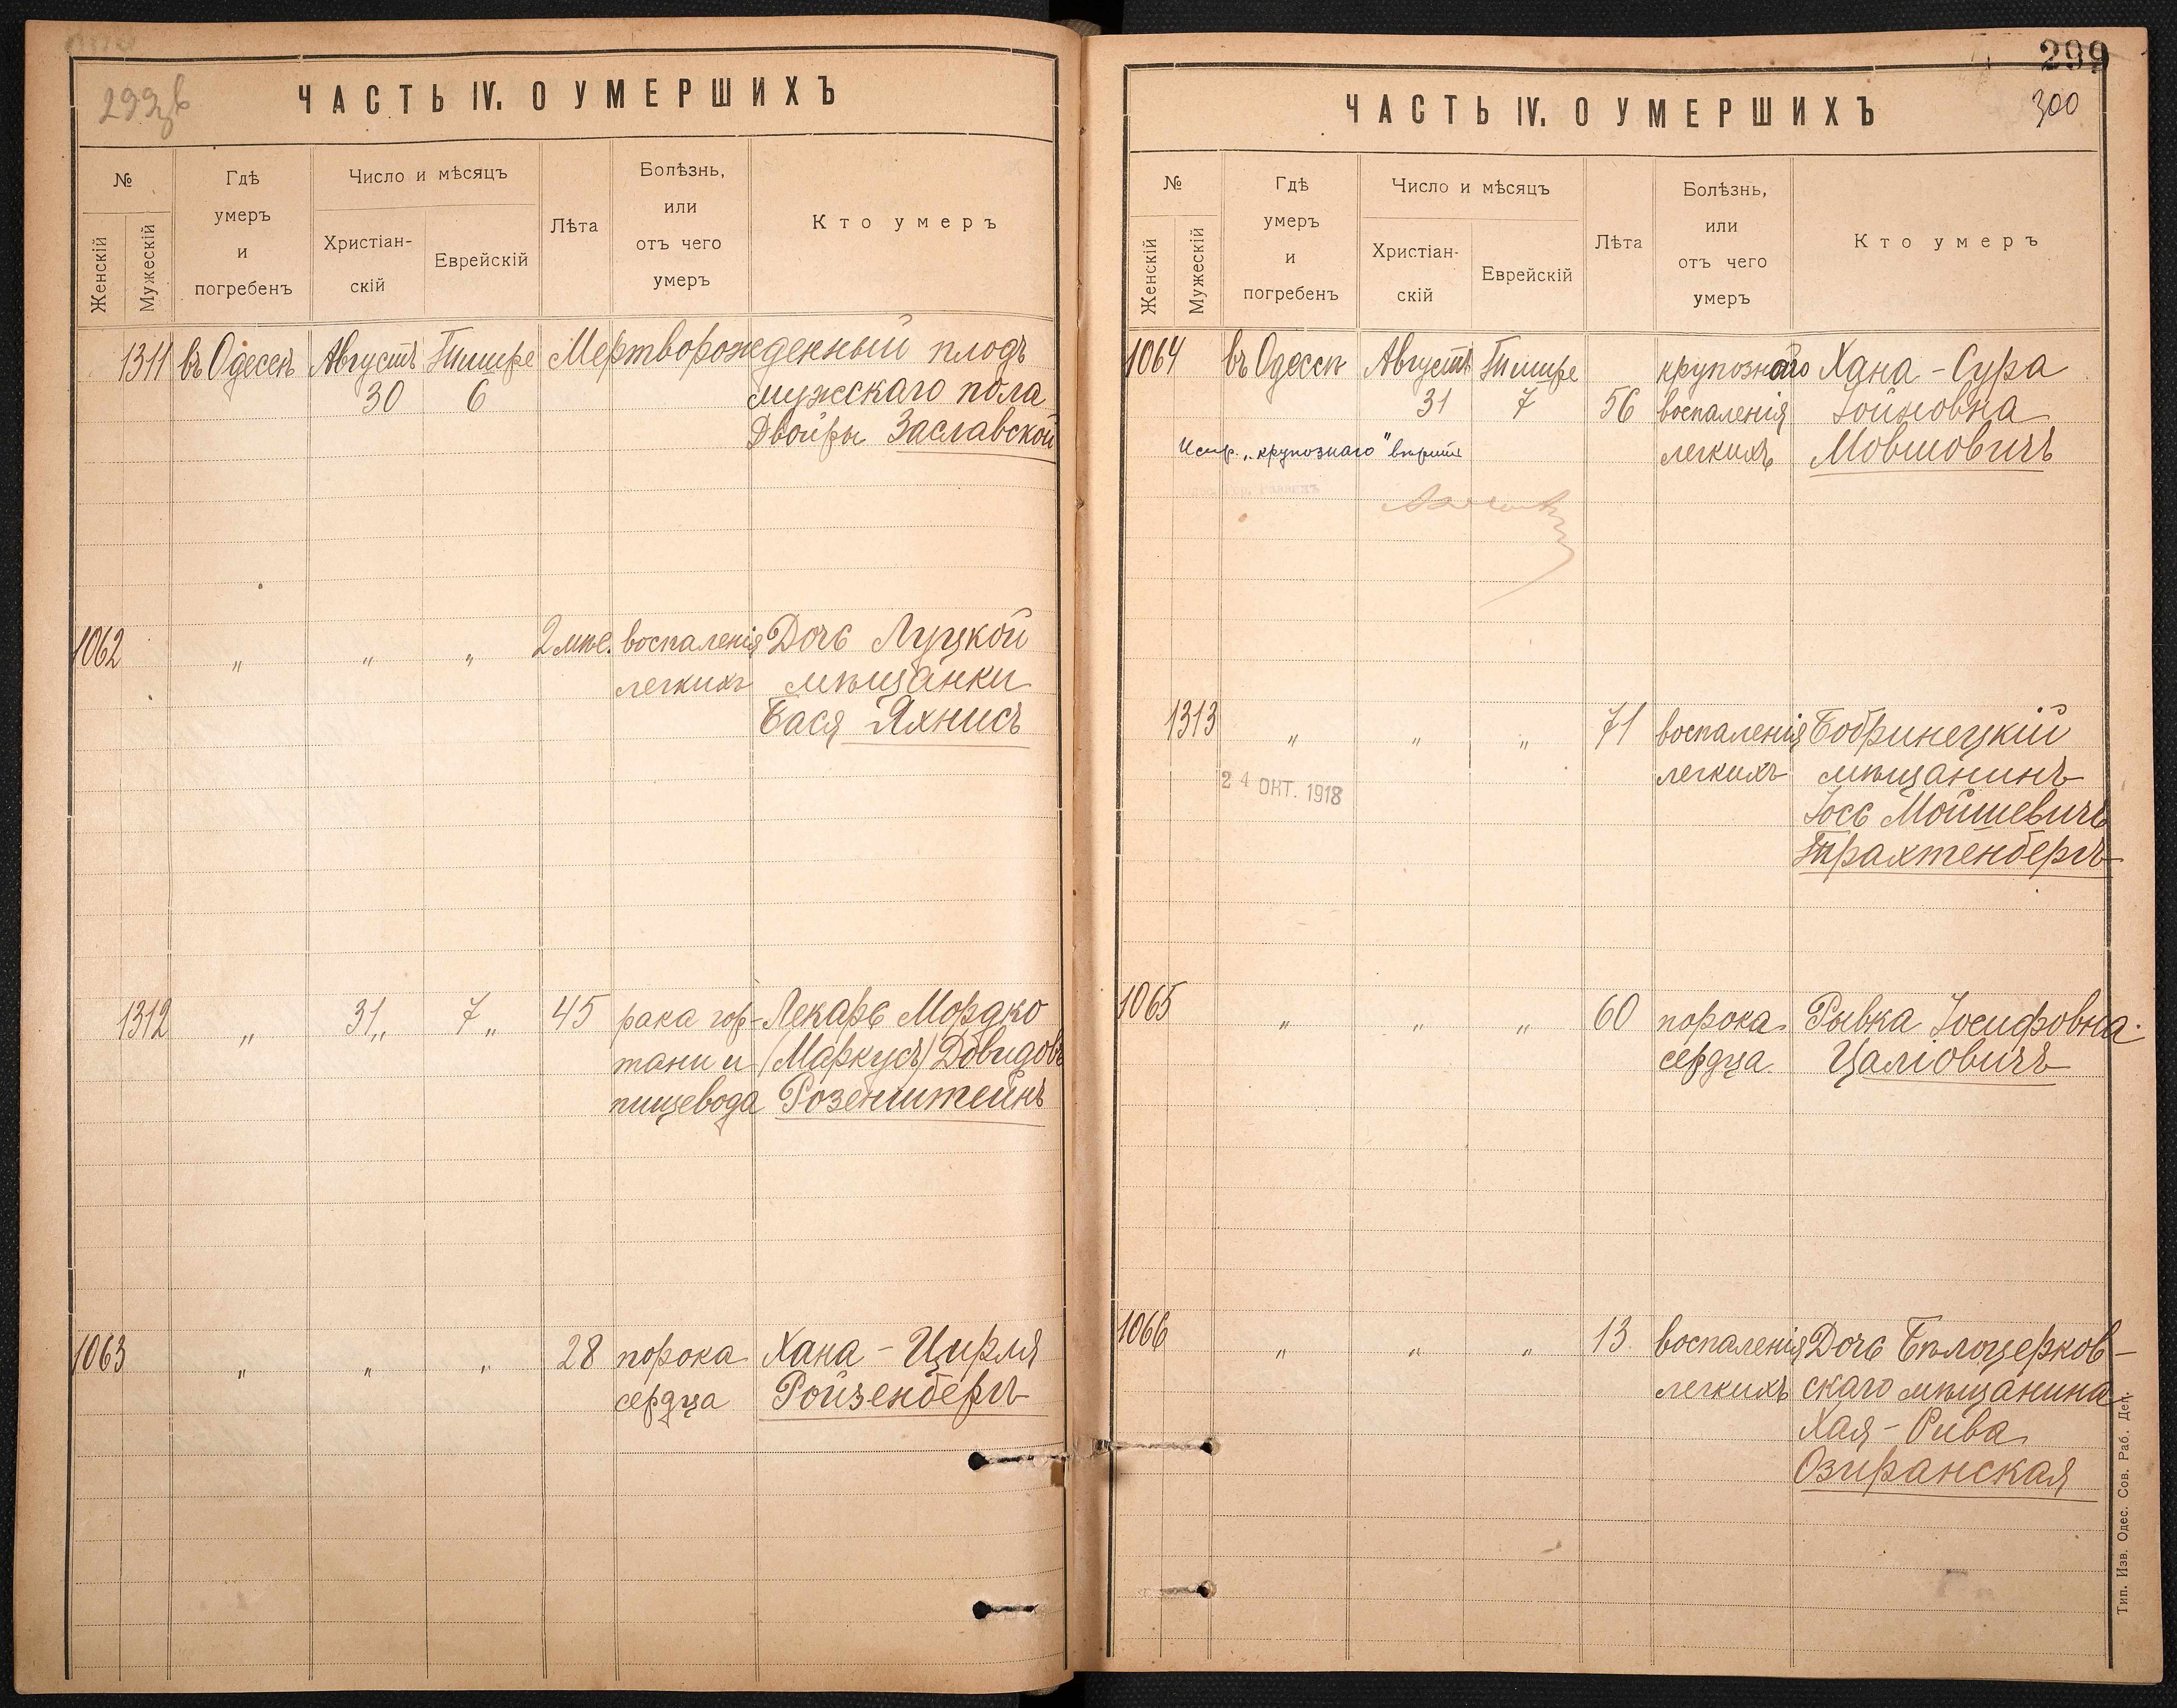 299
300
ЧАСТЬ IV. О УМЕРШИХЪ
№
Женскій
Мужескій
Гдѣ
умеръ
и
погребенъ
Число и мѣсяцъ
Христіан-
скій
Еврейскій
Лѣта
Болѣзнь,
или
отъ чего
умеръ
Кто умеръ
1311 въ Одессѣ Августъ Тишре Мертворожденный плодъ
30 6 мужскаго пола
Двойры Заславской
1062 " " " 2 мѣс. воспаленія Дочь Луцкой
легкихъ мѣщанки
Бася Яхнисъ
1312 " 31 " 7 " 45 рака гор- Лекарь Мордко
тани и (Маркусъ) Довидовъ
пищевода Розенштейнъ
1063 " " " 28 порока Хана - Цирля
сердца Ройзенбергъ
ЧАСТЬ IV. О УМЕРШИХЪ
№
Женскій
Мужескій
Гдѣ
умеръ
и
погребенъ
Число и мѣсяцъ
Христіан-
скій
Еврейскій
Лѣта
Болѣзнь,
или
отъ чего
умеръ
Кто умеръ
1064 въ Одессѣ Августъ Тишре крупознаго Хана - Сура
31 7 56 воспаленія Іойновна
Испр. „крупознаго" вѣрить легкихъ Мовшовичъ
1313 " " " 71 воспаленія Бобринецкій
легкихъ мѣщанинъ
24 ОКТ. 1918
Іось Мойшевичъ
Трахтенбергъ
1065 " " " 60 порока Рывка Іосифовна
сердца Цаліовичъ
1066 " " " 13 воспаленія Дочь Бѣлоцерков-
легкихъ скаго мѣщанина
Хая - Рива
Озиранская
Тип. Изв. Одес. Сов. Раб. Деп.